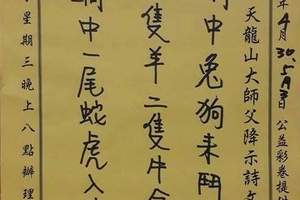 年4月30.5月3日公益彩卷提供
天龍山大師父降示詩文
中兔狗未鬥
隻羊二隻牛
中一尾蛇虎入
星期三晚上八點辦理